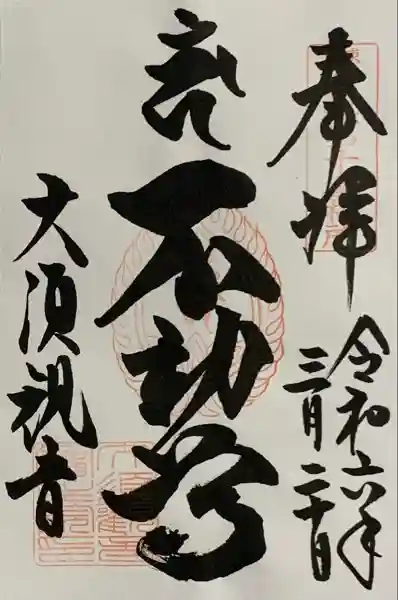 奉拝
令和六年
三月二十日
不動尊
大須観音